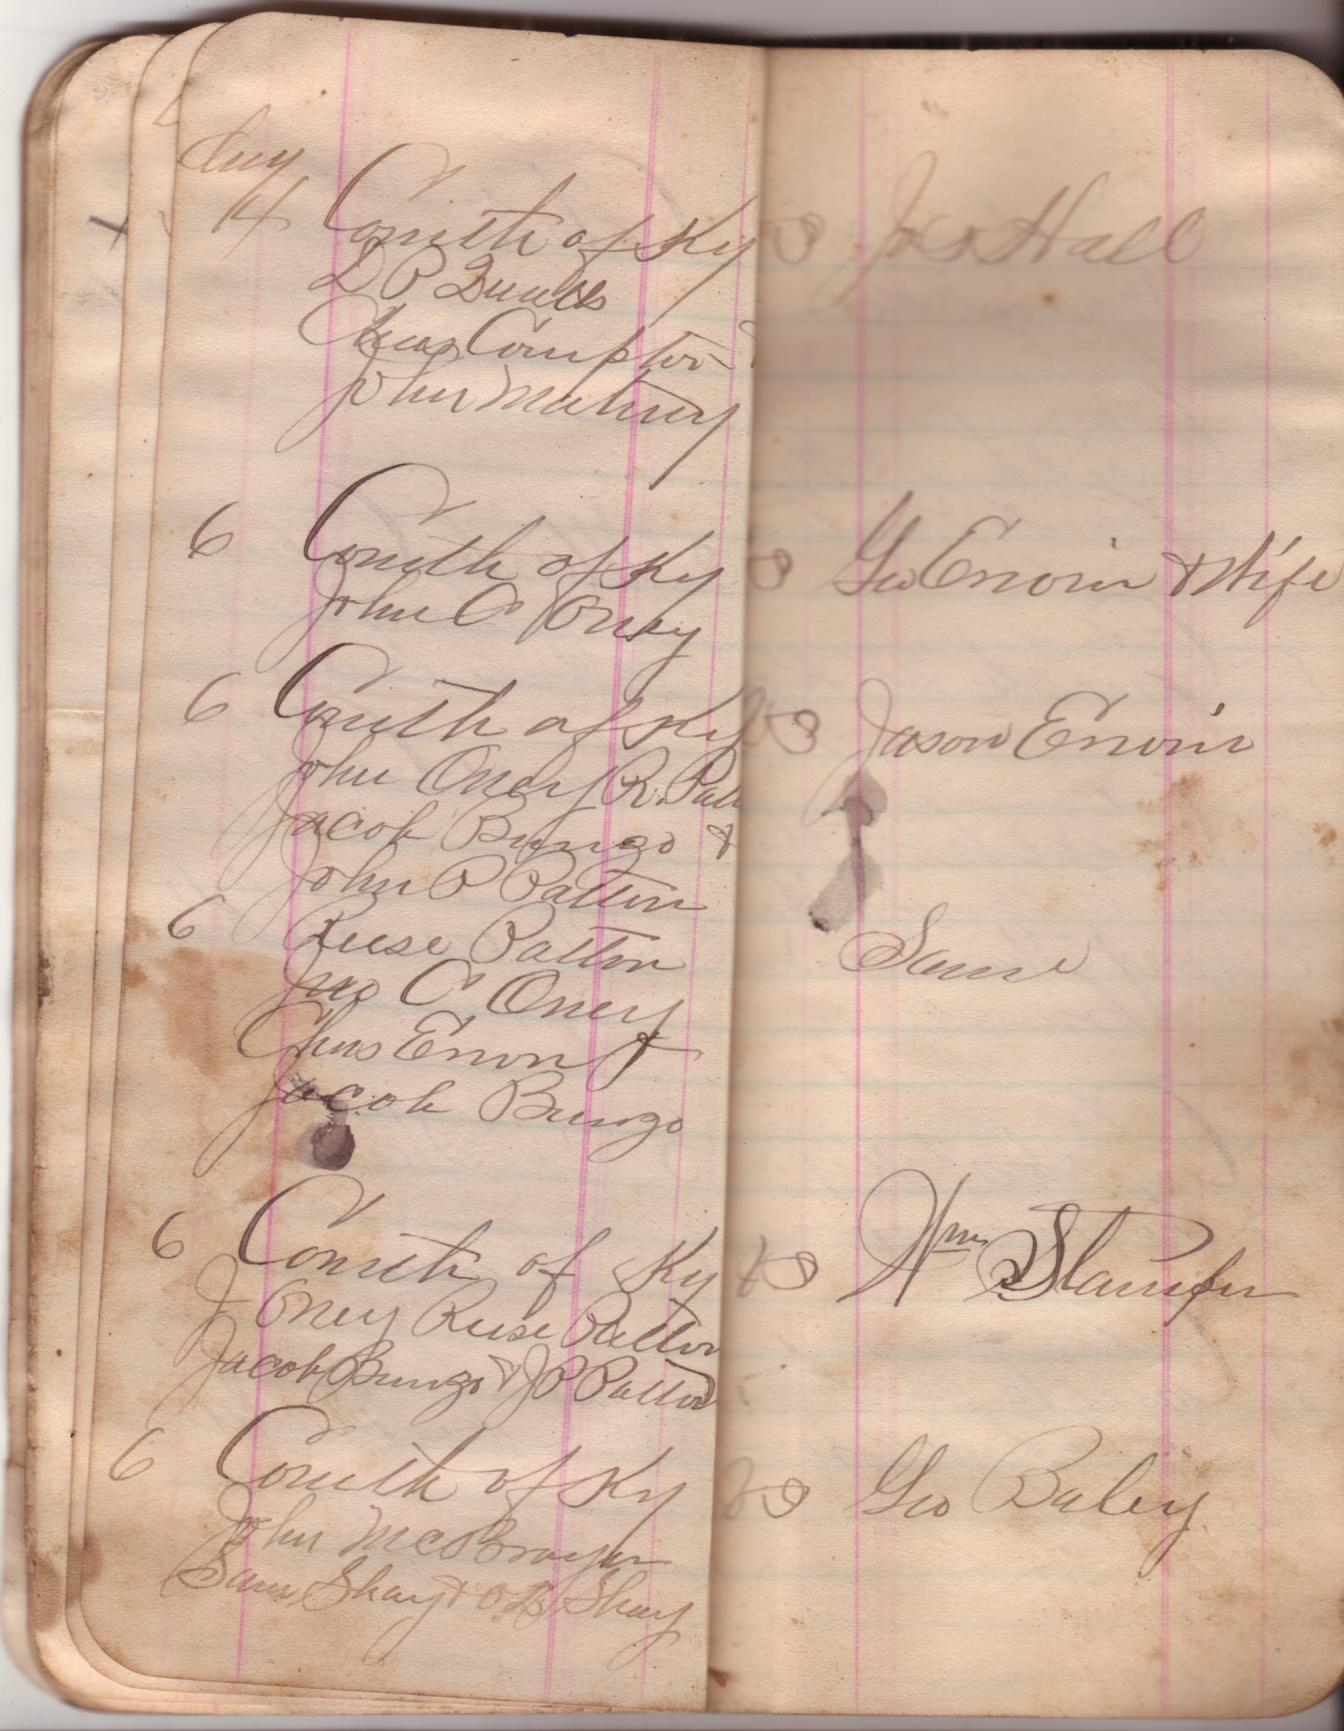 Aug
14 Comth of Ky vs Jas Hall
D P
Chas Compton &
John
6 Comth of Ky vs Geo Ervin & Wife
John C Oney
6 Comth of Ky vs Jason Ervin
John Oney R. Patt
Jacob Bungo &
John P Patton
6 Reese Patton Same
Jno C Oney
Chas Ervin &
Jacob Bungo
6 Comth of Ky vs Wm Stamper
J Oney Reese Patton
Jacob Bungo & J P Patton
6 Comth of Ky vs Geo Baley
John McBrayer
Sam Shay & Shay